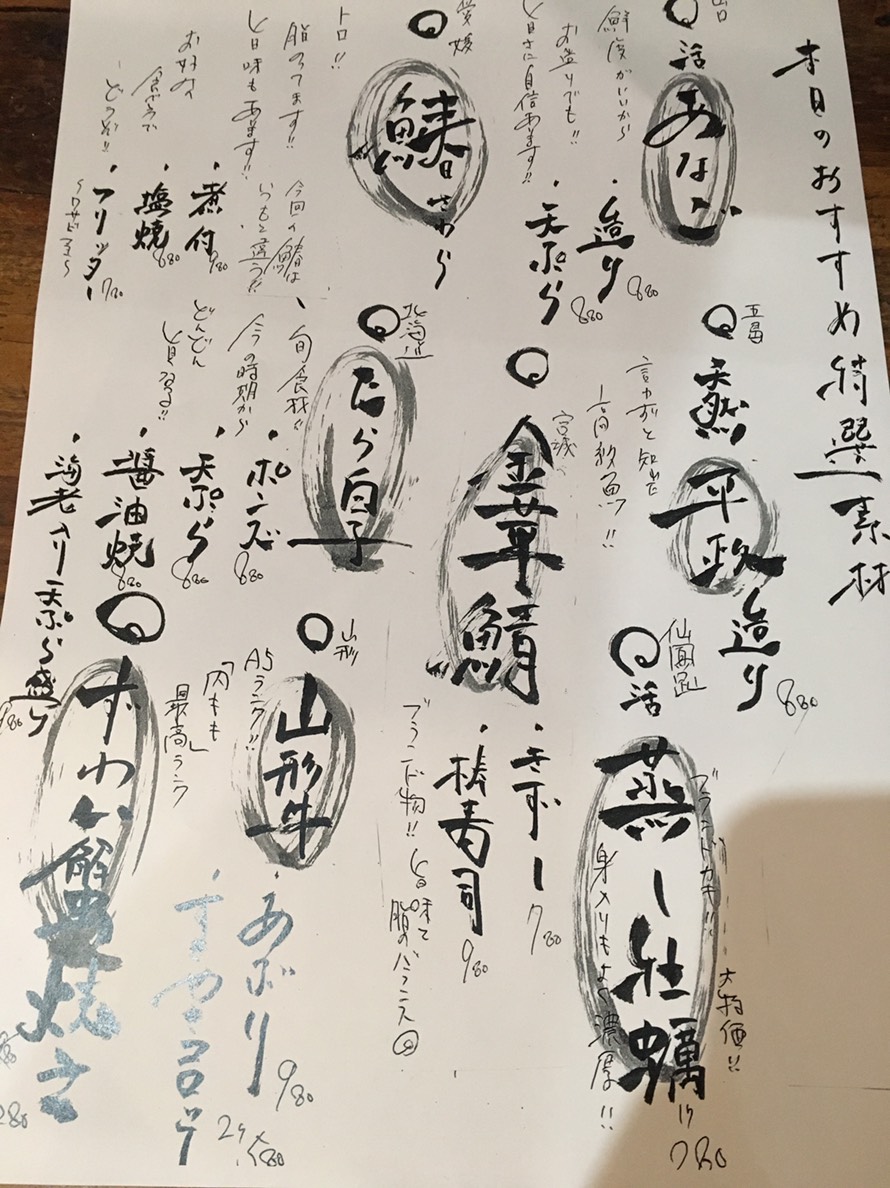 本日のおすすめ特選素材
山口
活
あなご
鮮度がいいから
お造りでも!!
旨さに自信あります!!
・造り 880
・天ぷら 880
愛媛
鰆
さわら
トロ!!
脂のってます!!
旨味もあります!!
お好きな
食べ方で
どうぞ!!
今回の鰆は
いつもと違うだ
・煮付 980
・塩焼 880
・フリッター 780
五島
天然
平政
造り 880
言わずと知れた
高級魚!!
宮城
金華鯖
・きずし 780
・棒寿司 980
ブランド物!!
旨味と
脂のバランス
北海道
たら白子
旬食材!!
今の時期から
どんどん
旨くなる!!
・ポンズ 880
・天ぷら 880
・醤油焼 880
・海老入り天ぷら盛り
仙鳳趾
活
蒸し牡蠣
ブランドカキ!!
身入りもよく濃厚!!
大特価!!
1ケ 780
山形
山形牛
A5ランク!!
「内もも」
最高ランク
・あぶり 980
ずわい蟹
焼き